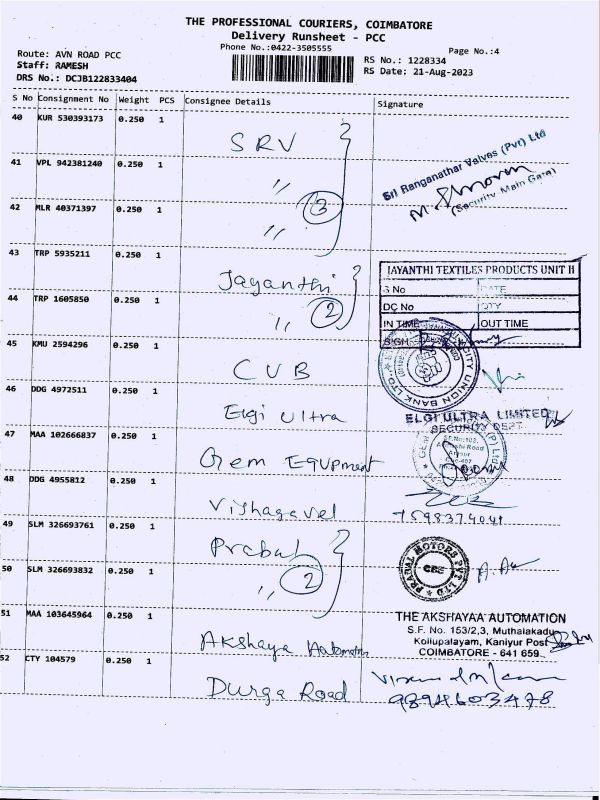 THE PROFESSIONAL COURIERS, COIMBATORE
Delivery Runsheet - PCC
Phone No.:0422-3505555
Page No.:4
Route: AVN ROAD PCC
Staff: RAMESH
DRS No.: DCJB122833404
RS No.: 1228334
RS Date: 21-Aug-2023
S No Consignment No Weight PCS Consignee Details Signature
40 KUR 530393173 0.250 1 SRV
Sri Ranganathar Valves (Pvt) Ltd
(Security Main Gate)
41 VPL 942381240 0.250 1 "
3
42 MLR 40371397 0.250 1 "
43 TRP 5935211 0.250 1 Jayanthi
JAYANTHI TEXTILES PRODUCTS UNIT II
S No DATE
DC No QTY
IN TIME OUT TIME
SIGN
44 TRP 1605850 0.250 1 " 2
45 KMU 2594296 0.250 1 CUB
CITY UNION BANK LTD
46 DDG 4972511 0.250 1 Elgi Ultra
ELGI ULTRA LIMITED
SECURITY DEPT
47 MAA 102666837 0.250 1 Gem Equpment
48 DDG 4955812 0.250 1 Vishagavel
7598374041
49 SLM 326693761 0.250 1 Prabal
PRABAL MOTORS PVT LTD
CBE
50 SLM 326693832 0.250 1 " 2
51 MAA 103645964 0.250 1 Akshaya Automation
THE AKSHAYAA AUTOMATION
S.F. No. 153/2,3, Muthalakadu
Kollupalayam, Kaniyur Post
COIMBATORE - 641 659.
52 CTY 104579 0.250 1 Durga Road
9894603478